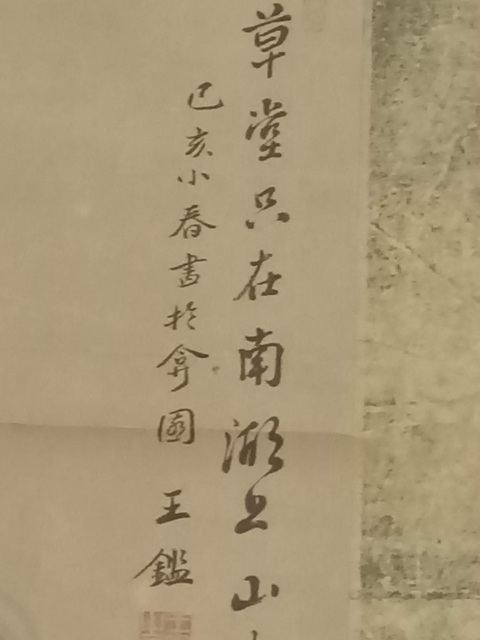 草堂只在南湖上山
己亥小春書於弇園 王鑑